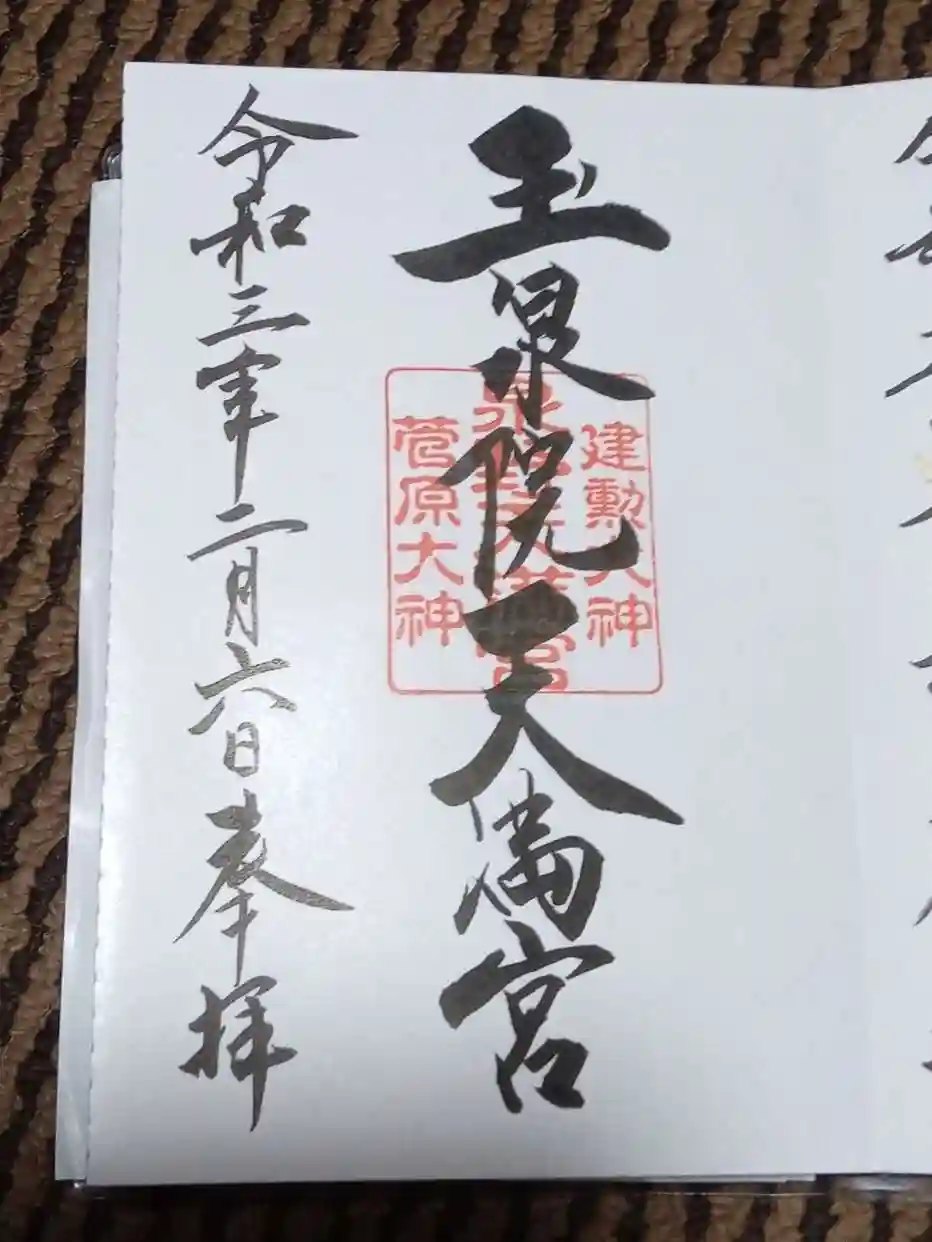 玉泉院天満宮
建勲大神
菅原大神
令和三年二月六日奉拝